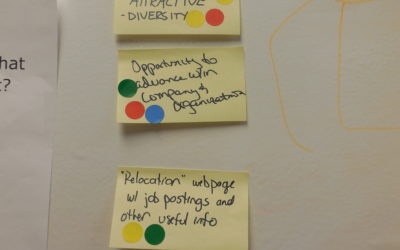 hat
?
ATTRACTIVE
- DIVERSITY
Opportunity to
advance w/in
company &
organization
"Relocation" webpage
w/ job postings and
other useful info